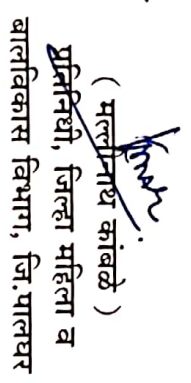 ( मल्लीनाथ कांबळे )
प्रतिनिधी, जिल्हा महिला व
बालविकास विभाग, जि.पालघर